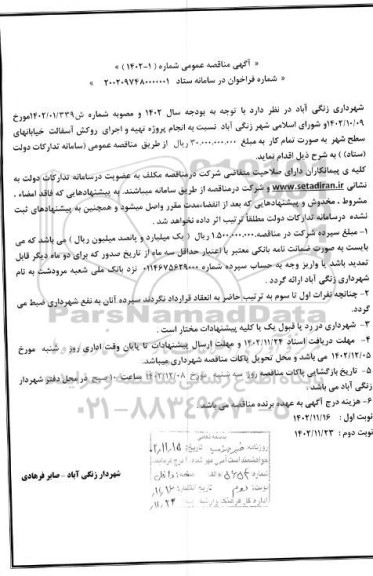 « آگهی مناقصه عمومی شماره ( ۱-۱۴۰۲ ) »
« شماره فراخوان در سامانه ستاد ۲۰۰۲۰۹۷۴۸۰۰۰۰۰۰۱ »
شهرداری زنگی آباد در نظر دارد با توجه به بودجه سال ۱۴۰۲ و مصوبه شماره ش/۱۴۰۲/۰۱/۳۳۹مورخ
۱۴۰۲/۱۰/۰۹و شورای اسلامی شهر زنگی آباد نسبت به انجام پروژه تهیه و اجرای روکش آسفالت خیابانهای
سطح شهر به صورت تمام کار به مبلغ ۳۰.۰۰۰.۰۰۰.۰۰۰ ریال از طریق مناقصه عمومی (سامانه تدارکات دولت
(ستاد)) به شرح ذیل اقدام نماید.
کلیه ی پیمانکاران دارای صلاحیت متقاضی شرکت درمناقصه مکلف به عضویت درسامانه تدارکات دولت به
نشانی www.setadiran.ir و شرکت درمناقصه از طریق سامانه میباشند. به پیشنهادهایی که فاقد امضاء ،
مشروط ، مخدوش و پیشنهادهایی که بعد از انقضاءمدت مقرر واصل میشود و همچنین به پیشنهادهای ثبت
نشده درسامانه تدارکات دولت مطلقا ترتیب اثر داده نخواهد شد .
۱- مبلغ سپرده شرکت در مناقصه.۱.۵۰۰.۰۰۰.۰۰۰ ریال ( یک میلیارد و پانصد میلیون ریال ) می باشد که می
بایست به صورت ضمانت نامه بانکی معتبر با اعتبار حداقل سه ماه از تاریخ صدور که برای دو ماه دیگر قابل
تمدید باشد. یا واریز وجه به حساب سپرده شماره ۰۱۱۴۶۷۵۶۲۹۰۰۰ نزد بانک ملی شعبه مرودشت به نام
شهرداری زنگی آباد ارائه گردد .
۲- چنانچه نفرات اول تا سوم به ترتیب حاضر به انعقاد قرارداد نگردند سپرده آنان به نفع شهرداری ضبط می
گردد.
۳- شهرداری در رد یا قبول یک یا کلیه پیشنهادات مختار است .
۴- مهلت دریافت اسناد ۱۴۰۲/۱۱/۲۴ و مهلت ارسال پیشنهادات تا پایان وقت اداری روز شنبه مورخ
۱۴۰۲/۱۲/۰۵ می باشد و محل تحویل پاکات مناقصه شهرداری میباشد.
۵- تاریخ بازگشایی پاکات مناقصه روز سه شنبه مورخ ۱۴۰۲/۱۲/۰۸ ساعت ۱۰ صبح در محل دفتر شهردار
زنگی آباد می باشد .
۶- هزینه درج آگهی به عهده برنده مناقصه می باشد.
نوبت اول : ۱۴۰۲/۱۱/۱۶
نوبت دوم : ۱۴۰۲/۱۱/۲۳
شهردار زنگی آباد - صابر فرهادی
ParsNamadData
۰۲۱-۸۸۳۴۹